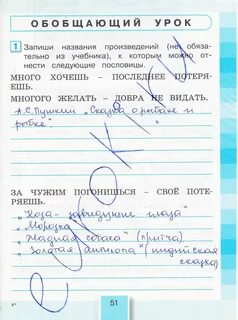 ОБОБЩАЮЩИЙ УРОК
1 Запиши названия произведений (не обяза-
тельно из учебника), к которым можно от-
нести следующие пословицы.
МНОГО ХОЧЕШЬ — ПОСЛЕДНЕЕ ПОТЕРЯ-
ЕШЬ.
МНОГОГО ЖЕЛАТЬ — ДОБРА НЕ ВИДАТЬ.
А.С. Пушкин „Сказка о рыбаке и
рыбке."
ЗА ЧУЖИМ ПОГОНИШЬСЯ — СВОЁ ПОТЕ-
РЯЕШЬ.
„Коза - завидущие глаза"
„Морозко"
„Жадная собака" (притча)
„Золотая антилопа" (индийская
сказка)
51